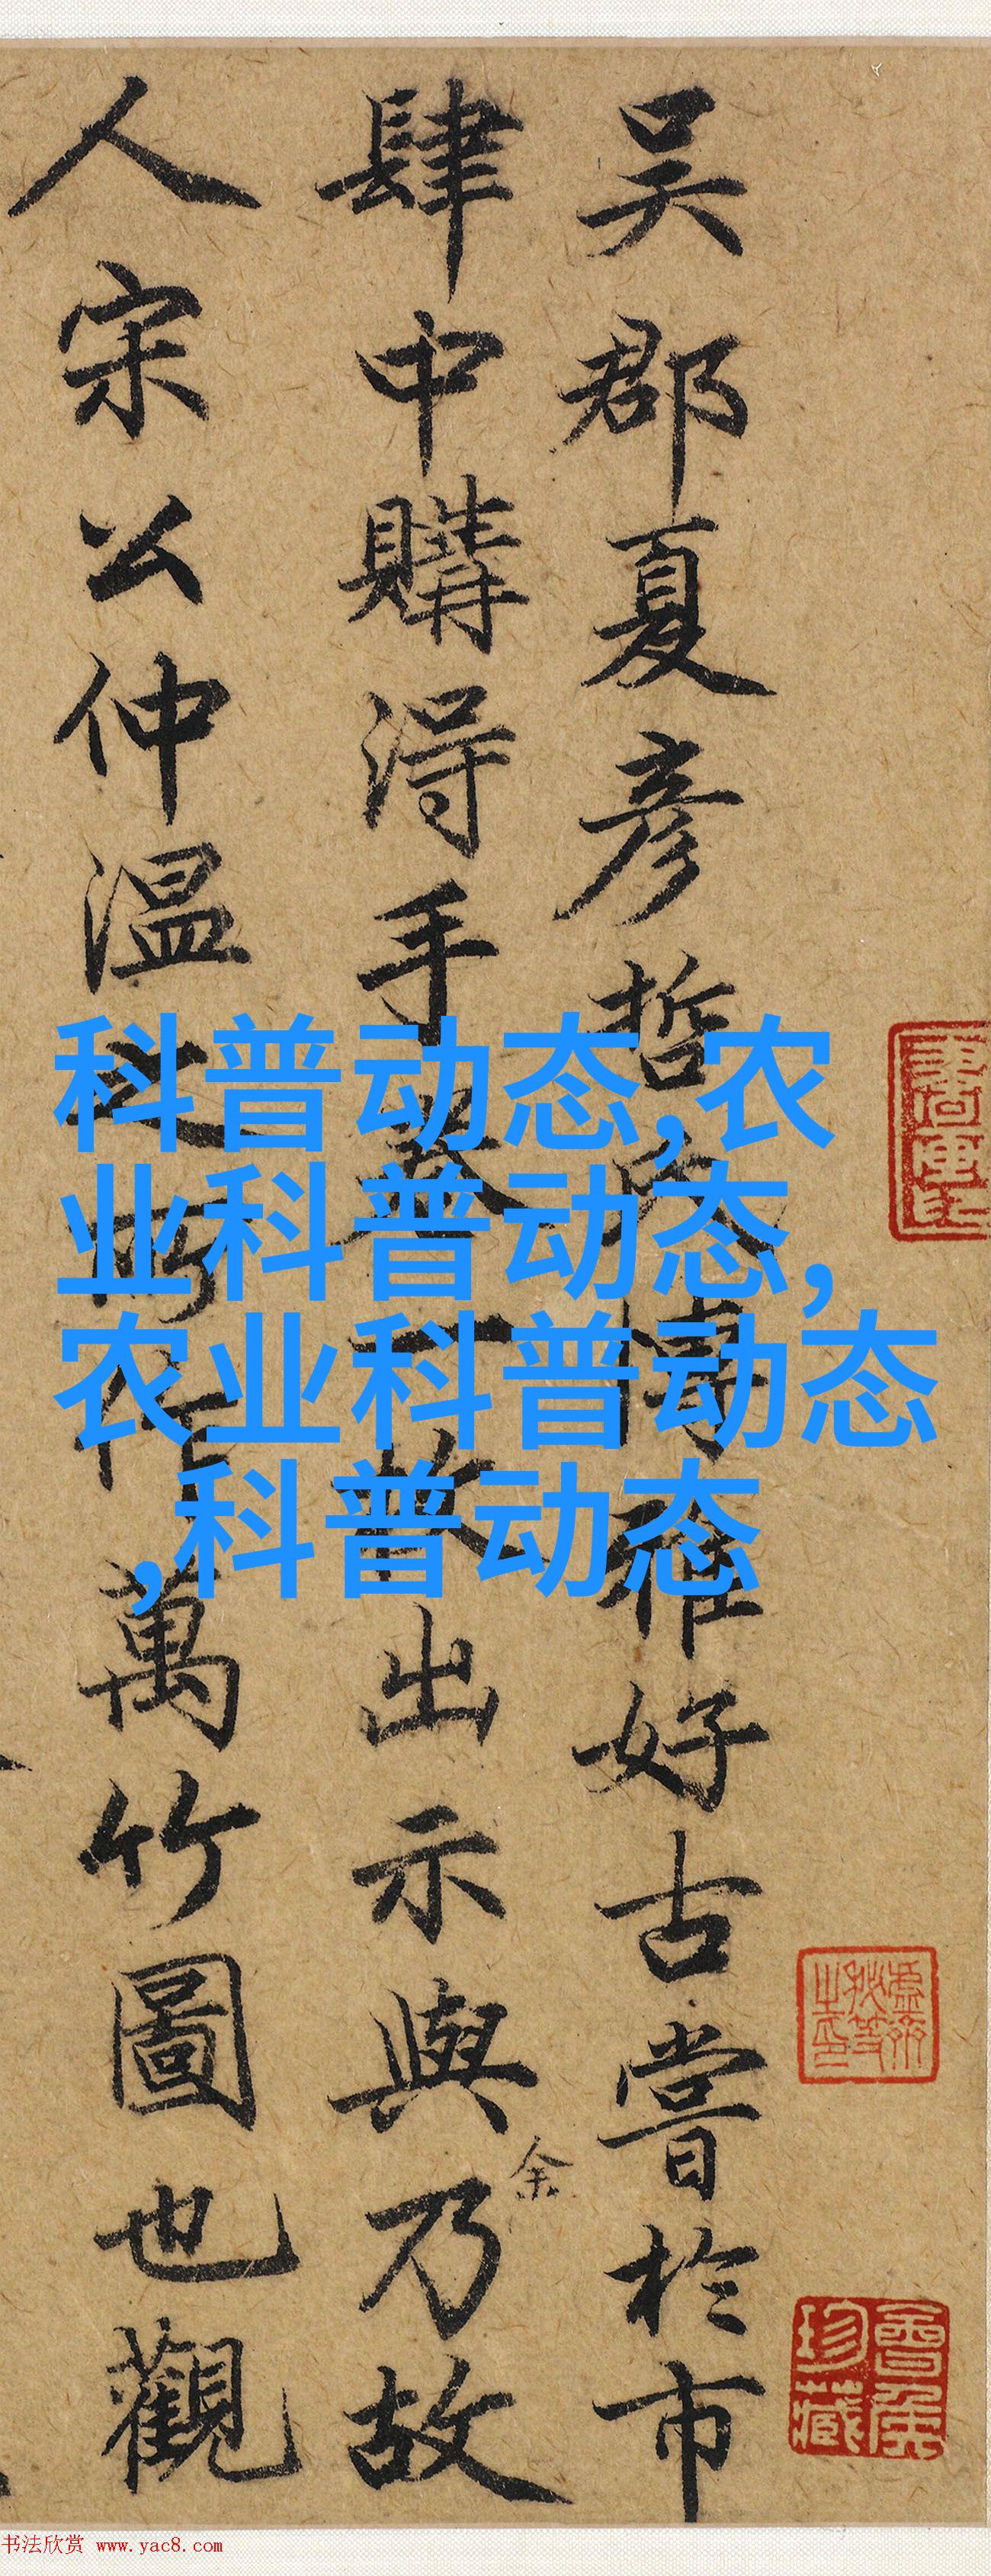 吴郡夏彦哲博雅好古嘗於市
肆中購得手卷一出示與乃故
余
人宋公仲温之所作萬竹圖也觀
科普动态,农
业科普动态,
农业科普动态
,科普动态
书法欣赏 www.yac8.com